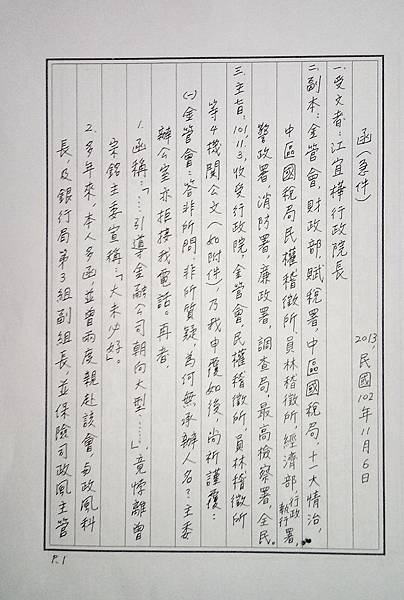 函(急件)
2013,民國102年11月6日
一.受文者:江宜樺行政院長
二.副本:金管會,財政部,賦稅署,中區國稅局,十一大情治,
中區國稅局民權稽徵所,員林稽徵所,經濟部,行政執行署,
警政署,消防署,廉政署,調查局,最高檢察署,全民。
三.主旨:101.11.3,收受行政院,金管會,民權稽徵所,員林稽徵所
等4機關公文(如附件),乃我申覆如後,尚祈謹覆:
㈠金管會:答非所問,非所質疑,為何無承辦人名?主委
辦公室亦拒接我電話。再者,
1.函稱:「……引導金融公司朝向大型……」,竟悖離曾
宗銘主委宣稱:「大未必好」。
2.多年來,本人多函,並曾兩度親赴該會,與政風科
長,及銀行局第3組副組長,並保險司政風主管
P.1